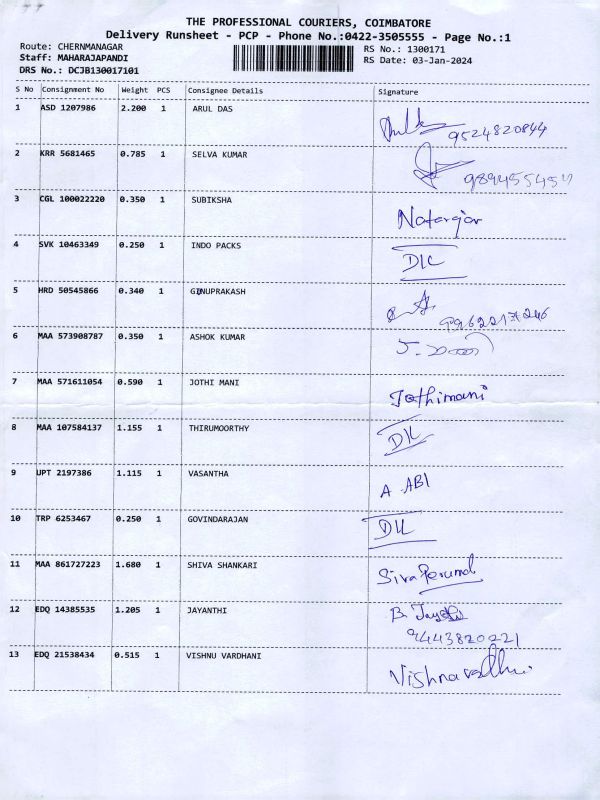 THE PROFESSIONAL COURIERS, COIMBATORE
Delivery Runsheet - PCP - Phone No.:0422-3505555 - Page No.:1
Route: CHERNMANAGAR RS No.: 1300171
Staff: MAHARAJAPANDI RS Date: 03-Jan-2024
DRS No.: DCJB130017101
S No Consignment No Weight PCS Consignee Details Signature
1 ASD 1207986 2.200 1 ARUL DAS
9524820844
2 KRR 5681465 0.785 1 SELVA KUMAR
3 CGL 100022220 0.350 1 SUBIKSHA
Natarajan
4 SVK 10463349 0.250 1 INDO PACKS
DIL
5 HRD 50545866 0.340 1
6 MAA 573908787 0.350 1 ASHOK KUMAR
7 MAA 571611054 0.590 1 JOTHI MANI
Jothimani
8 MAA 107584137 1.155 1 THIRUMOORTHY
DIL
9 UPT 2197386 1.115 1 VASANTHA
A ABI
10 TRP 6253467 0.250 1 GOVINDARAJAN
DIL
11 MAA 861727223 1.680 1 SHIVA SHANKARI
Siva Perumal
12 EDQ 14385535 1.205 1 JAYANTHI
B.
9443820221
13 EDQ 21538434 0.515 1 VISHNU VARDHANI